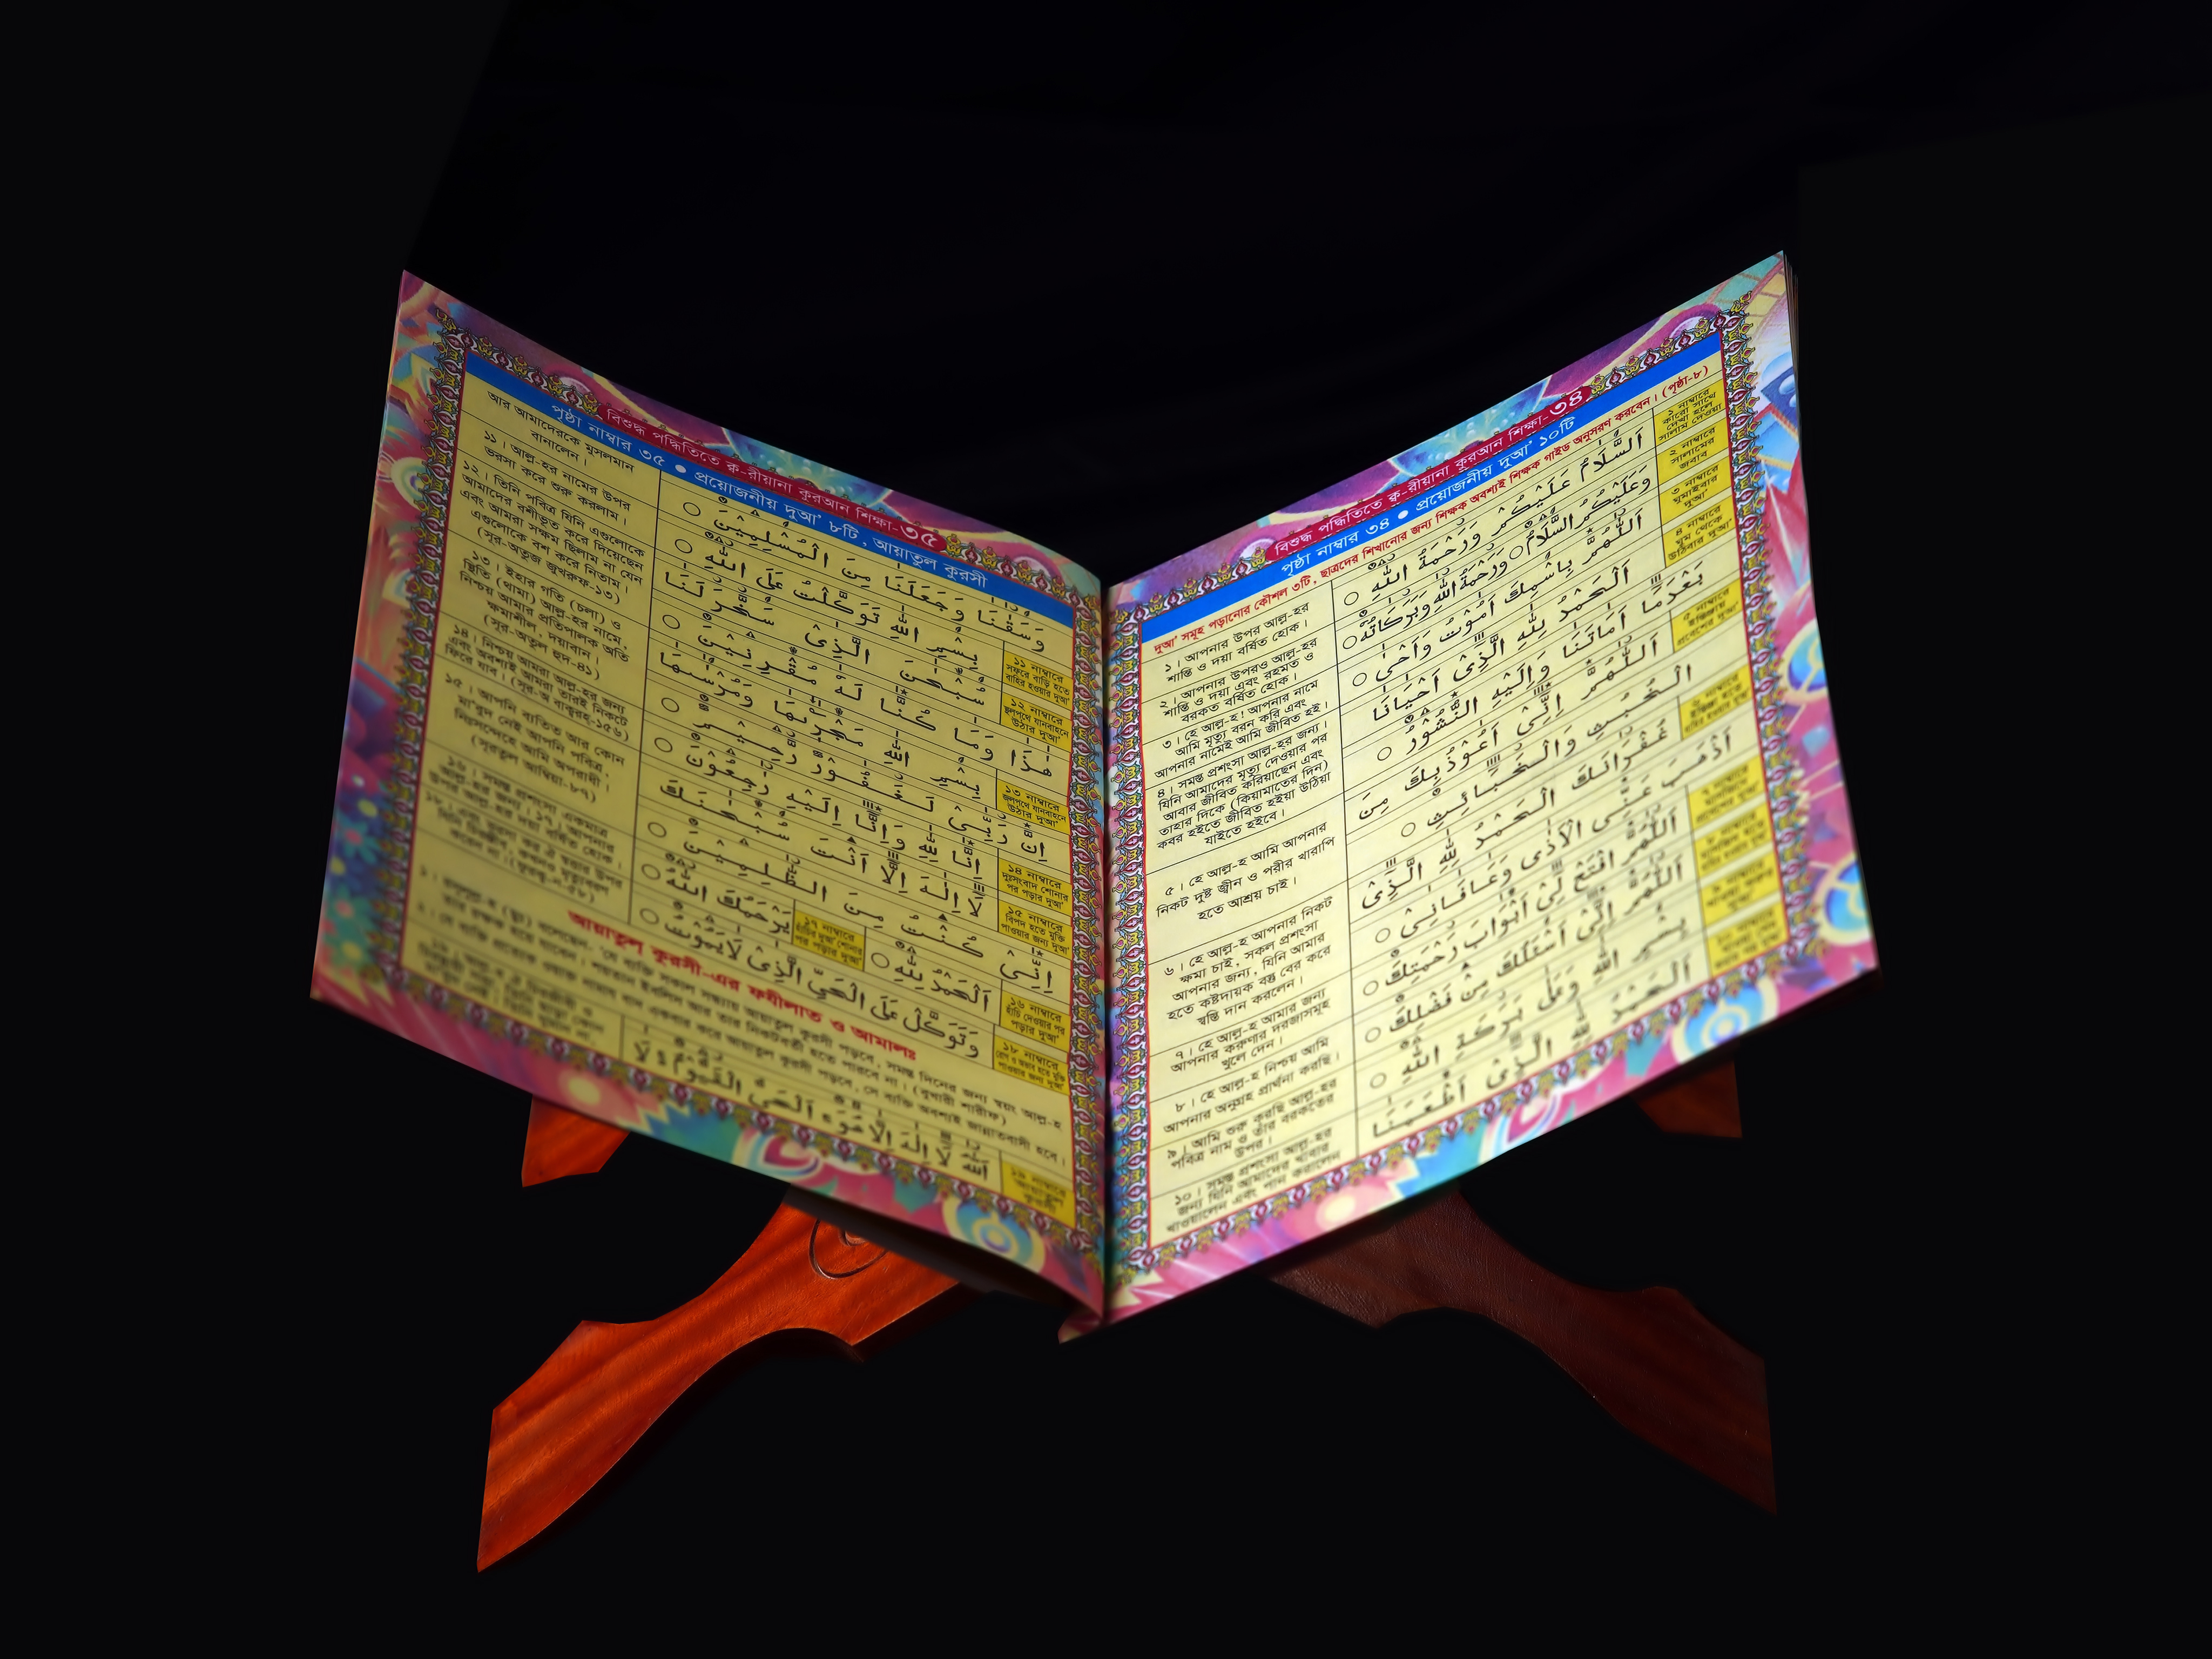 বিশুদ্ধ পদ্ধতিতে ক্ব-রীয়ানা কুরআন শিক্ষা-৩৪
পৃষ্ঠা নাম্বার ৩৪ ● প্রয়োজনীয় দুআ' ১০টি
দুআ' সমূহ পড়ানোর কৌশল ৩টি, ছাত্রদের শিখানোর জন্য শিক্ষক অবশ্যই শিক্ষক গাইড অনুসরণ করবেন। (পৃষ্ঠা-৮)
১ নাম্বারে
কারো সাথে
দেখা হলে
সালাম দেওয়া
اَلسَّلَامُ عَلَيْكُمْ وَرَحْمَةُ اللهِ
১। আপনার উপর আল্ল-হর
শান্তি ও দয়া বর্ষিত হোক।
২ নাম্বারে
সালামের
জবাব
وَعَلَيْكُمُ السَّلَامُ وَرَحْمَةُ اللهِ وَبَرَكَاتُهٗ
২। আপনার উপরও আল্ল-হর
শান্তি ও দয়া এবং রহমত ও
বরকত বর্ষিত হোক।
৩ নাম্বারে
ঘুমাইবার
দুআ'
اَللّٰهُمَّ بِاسْمِكَ اَمُوْتُ وَاَحْىٰ
৩। হে আল্ল-হ! আপনার নামে
আমি মৃত্যু বরন করি এবং
আপনার নামেই আমি জীবিত হই।
৪ নাম্বারে
ঘুম থেকে
উঠিবার দুআ'
اَلْحَمْدُ لِلّٰهِ الَّذِىْ اَحْيَانَا
بَعْدَمَا اَمَاتَنَا وَاِلَيْهِ النُّشُوْرُ
৪। সমস্ত প্রশংসা আল্ল-হর জন্য।
যিনি আমাদের মৃত্যু দেওয়ার পর
আবার জীবিত করিয়াছেন এবং
তাহার দিকে (কিয়ামাতের দিন)
কবর হইতে জীবিত হইয়া উঠিয়া
যাইতে হইবে।
৫ নাম্বারে
প্রবেশের দুআ'
اَللّٰهُمَّ اِنِّىْ اَعُوْذُبِكَ مِنَ
الْخُبُثِ وَالْخَبَائِثِ
৫। হে আল্ল-হ আমি আপনার
নিকট দুষ্ট জ্বীন ও পরীর খারাপি
হতে আশ্রয় চাই।
غُفْرَانَكَ اَلْحَمْدُ لِلّٰهِ الَّذِىْ
اَذْهَبَ عَنِّى الْاَذٰى وَعَافَانِىْ
৬। হে আল্ল-হ আপনার নিকট
ক্ষমা চাই, সকল প্রশংসা
আপনার জন্য, যিনি আমার
হতে কষ্টদায়ক বস্তু বের করে
স্বস্তি দান করলেন।
اَللّٰهُمَّ افْتَحْ لِىْ اَبْوَابَ رَحْمَتِكَ
৭। হে আল্ল-হ আমার জন্য
আপনার করুণার দরজাসমূহ
খুলে দেন।
اَللّٰهُمَّ اِنِّىْ اَسْئَلُكَ مِنْ فَضْلِكَ
৮। হে আল্ল-হ নিশ্চয় আমি
আপনার অনুগ্রহ প্রার্থনা করছি।
بِسْمِ اللهِ وَعَلٰى بَرَكَةِ اللهِ
৯। আমি শুরু করছি আল্ল-হর
পবিত্র নাম ও তাঁর বরকতের
উপর।
اَلْحَمْدُ لِلّٰهِ الَّذِىْ اَطْعَمَنَا
১০। সমস্ত প্রশংসা আল্ল-হর
জন্য যিনি আমাদের খাবার
খাওয়ালেন এবং পান করালেন
বিশুদ্ধ পদ্ধতিতে ক্ব-রীয়ানা কুরআন শিক্ষা-৩৫
পৃষ্ঠা নাম্বার ৩৫ ● প্রয়োজনীয় দুআ' ৮টি, আয়াতুল কুরসী
وَسَقَانَا وَجَعَلَنَا مِنَ الْمُسْلِمِيْنَ
আর আমাদেরকে মুসলমান
বানালেন।
১১ নাম্বারে
সফরে বাড়ি হতে
বাহির হওয়ার দুআ'
بِسْمِ اللهِ تَوَكَّلْتُ عَلَى اللهِ
১১। আল্ল-হর নামের উপর
ভরসা করে শুরু করলাম।
১২ নাম্বারে
স্থলপথে যানবাহনে
উঠার দুআ'
سُبْحٰنَ الَّذِىْ سَخَّرَلَنَا
هٰذَا وَمَا كُنَّا لَهٗ مُقْرِنِيْنَ
১২। তিনি পবিত্র যিনি এগুলোকে
আমাদের বশীভূত করে দিয়েছেন
এবং আমরা সক্ষম ছিলাম না যেন
এগুলোকে বশ করে নিতাম।
(সূর-অতুজ জুখরুফ-১৩)
১৩ নাম্বারে
জলপথে যানবাহনে
উঠার দুআ'
بِسْمِ اللهِ مَجْرٖىهَا وَمُرْسٰىهَا
اِنَّ رَبِّىْ لَغَفُوْرٌ رَّحِيْمٌ
১৩। ইহার গতি (চলা) ও
স্থিতি (থামা) আল্ল-হর নামে,
নিশ্চয় আমার প্রতিপালক অতি
ক্ষমাশীল, দয়াবান।
(সূর-অতুল হুদ-৪১)
১৪ নাম্বারে
দুঃসংবাদ শোনার
পর পড়ার দুআ'
اِنَّا لِلّٰهِ وَاِنَّا اِلَيْهِ رٰجِعُوْنَ
১৪। নিশ্চয় আমরা আল্ল-হর জন্য
এবং অবশ্যই আমরা তারই নিকটে
ফিরে যাব। (সূর-অ বাক্বরহ-১৫৬)
১৫ নাম্বারে
বিপদ হতে মুক্তি
পাওয়ার জন্য দুআ'
لَا اِلٰهَ اِلَّا اَنْتَ سُبْحٰنَكَ
اِنِّىْ كُنْتُ مِنَ الظّٰلِمِيْنَ
১৫। আপনি ব্যতিত আর কোন
মা'বুদ নেই আপনি পবিত্র,
নিঃসন্দেহে আমি অপরাধী।
(সূরতুল আম্বিয়া-৮৭)
১৬ নাম্বারে
হাঁচি দেওয়ার পর
পড়ার দুআ'
اَلْحَمْدُ لِلّٰهِ
১৭ নাম্বারে
হাঁচির দুআ' শোনার
পর পড়ার দুআ'
يَرْحَمُكَ اللهُ
১৬। সমস্ত প্রশংসা একমাত্র
আল্ল-হর জন্য। ১৭। আপনার
উপর আল্ল-হর দয়া বর্ষিত হোক।
১৮ নাম্বারে
পাওয়ার জন্য দুআ'
وَتَوَكَّلْ عَلَى الْحَىِّ الَّذِىْ لَايَمُوْتُ
আয়াতুল কুরসী-এর ফযীলাত ও আমালঃ
১৯ নাম্বারে
আয়াতুল
কুরসী
اَللهُ لَا اِلٰهَ اِلَّا هُوَ اَلْحَىُّ الْقَيُّوْمُ لَا